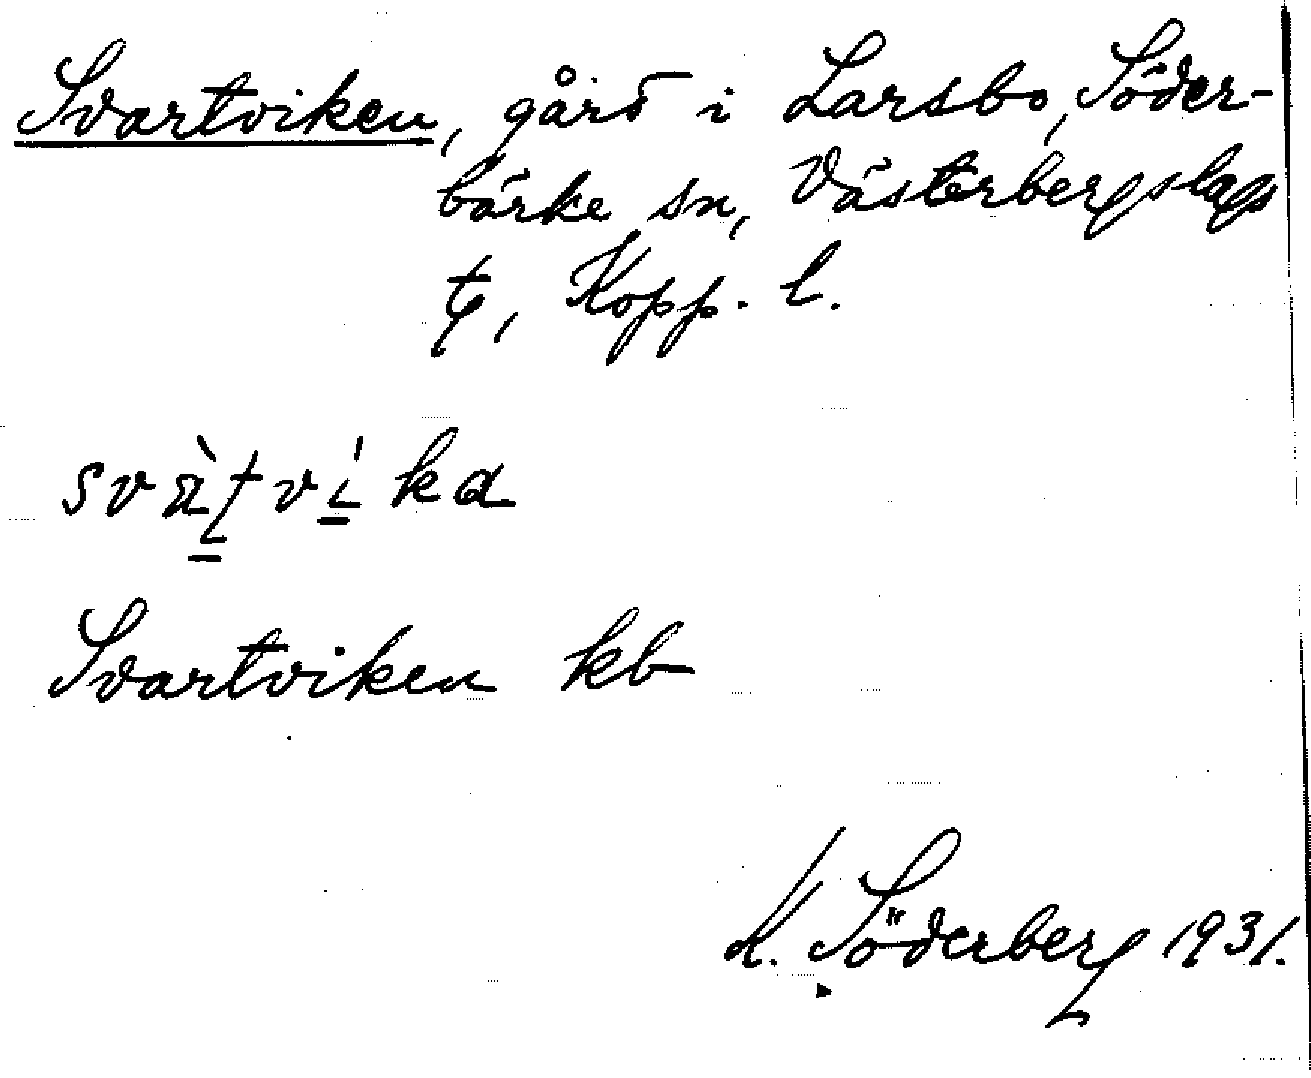 Svartviken, gård i Larsbo, Söder-
bärke sn, Västerbergslags
tg, Kopp. l.
Svartviken kb
K. Söderberg 1931.